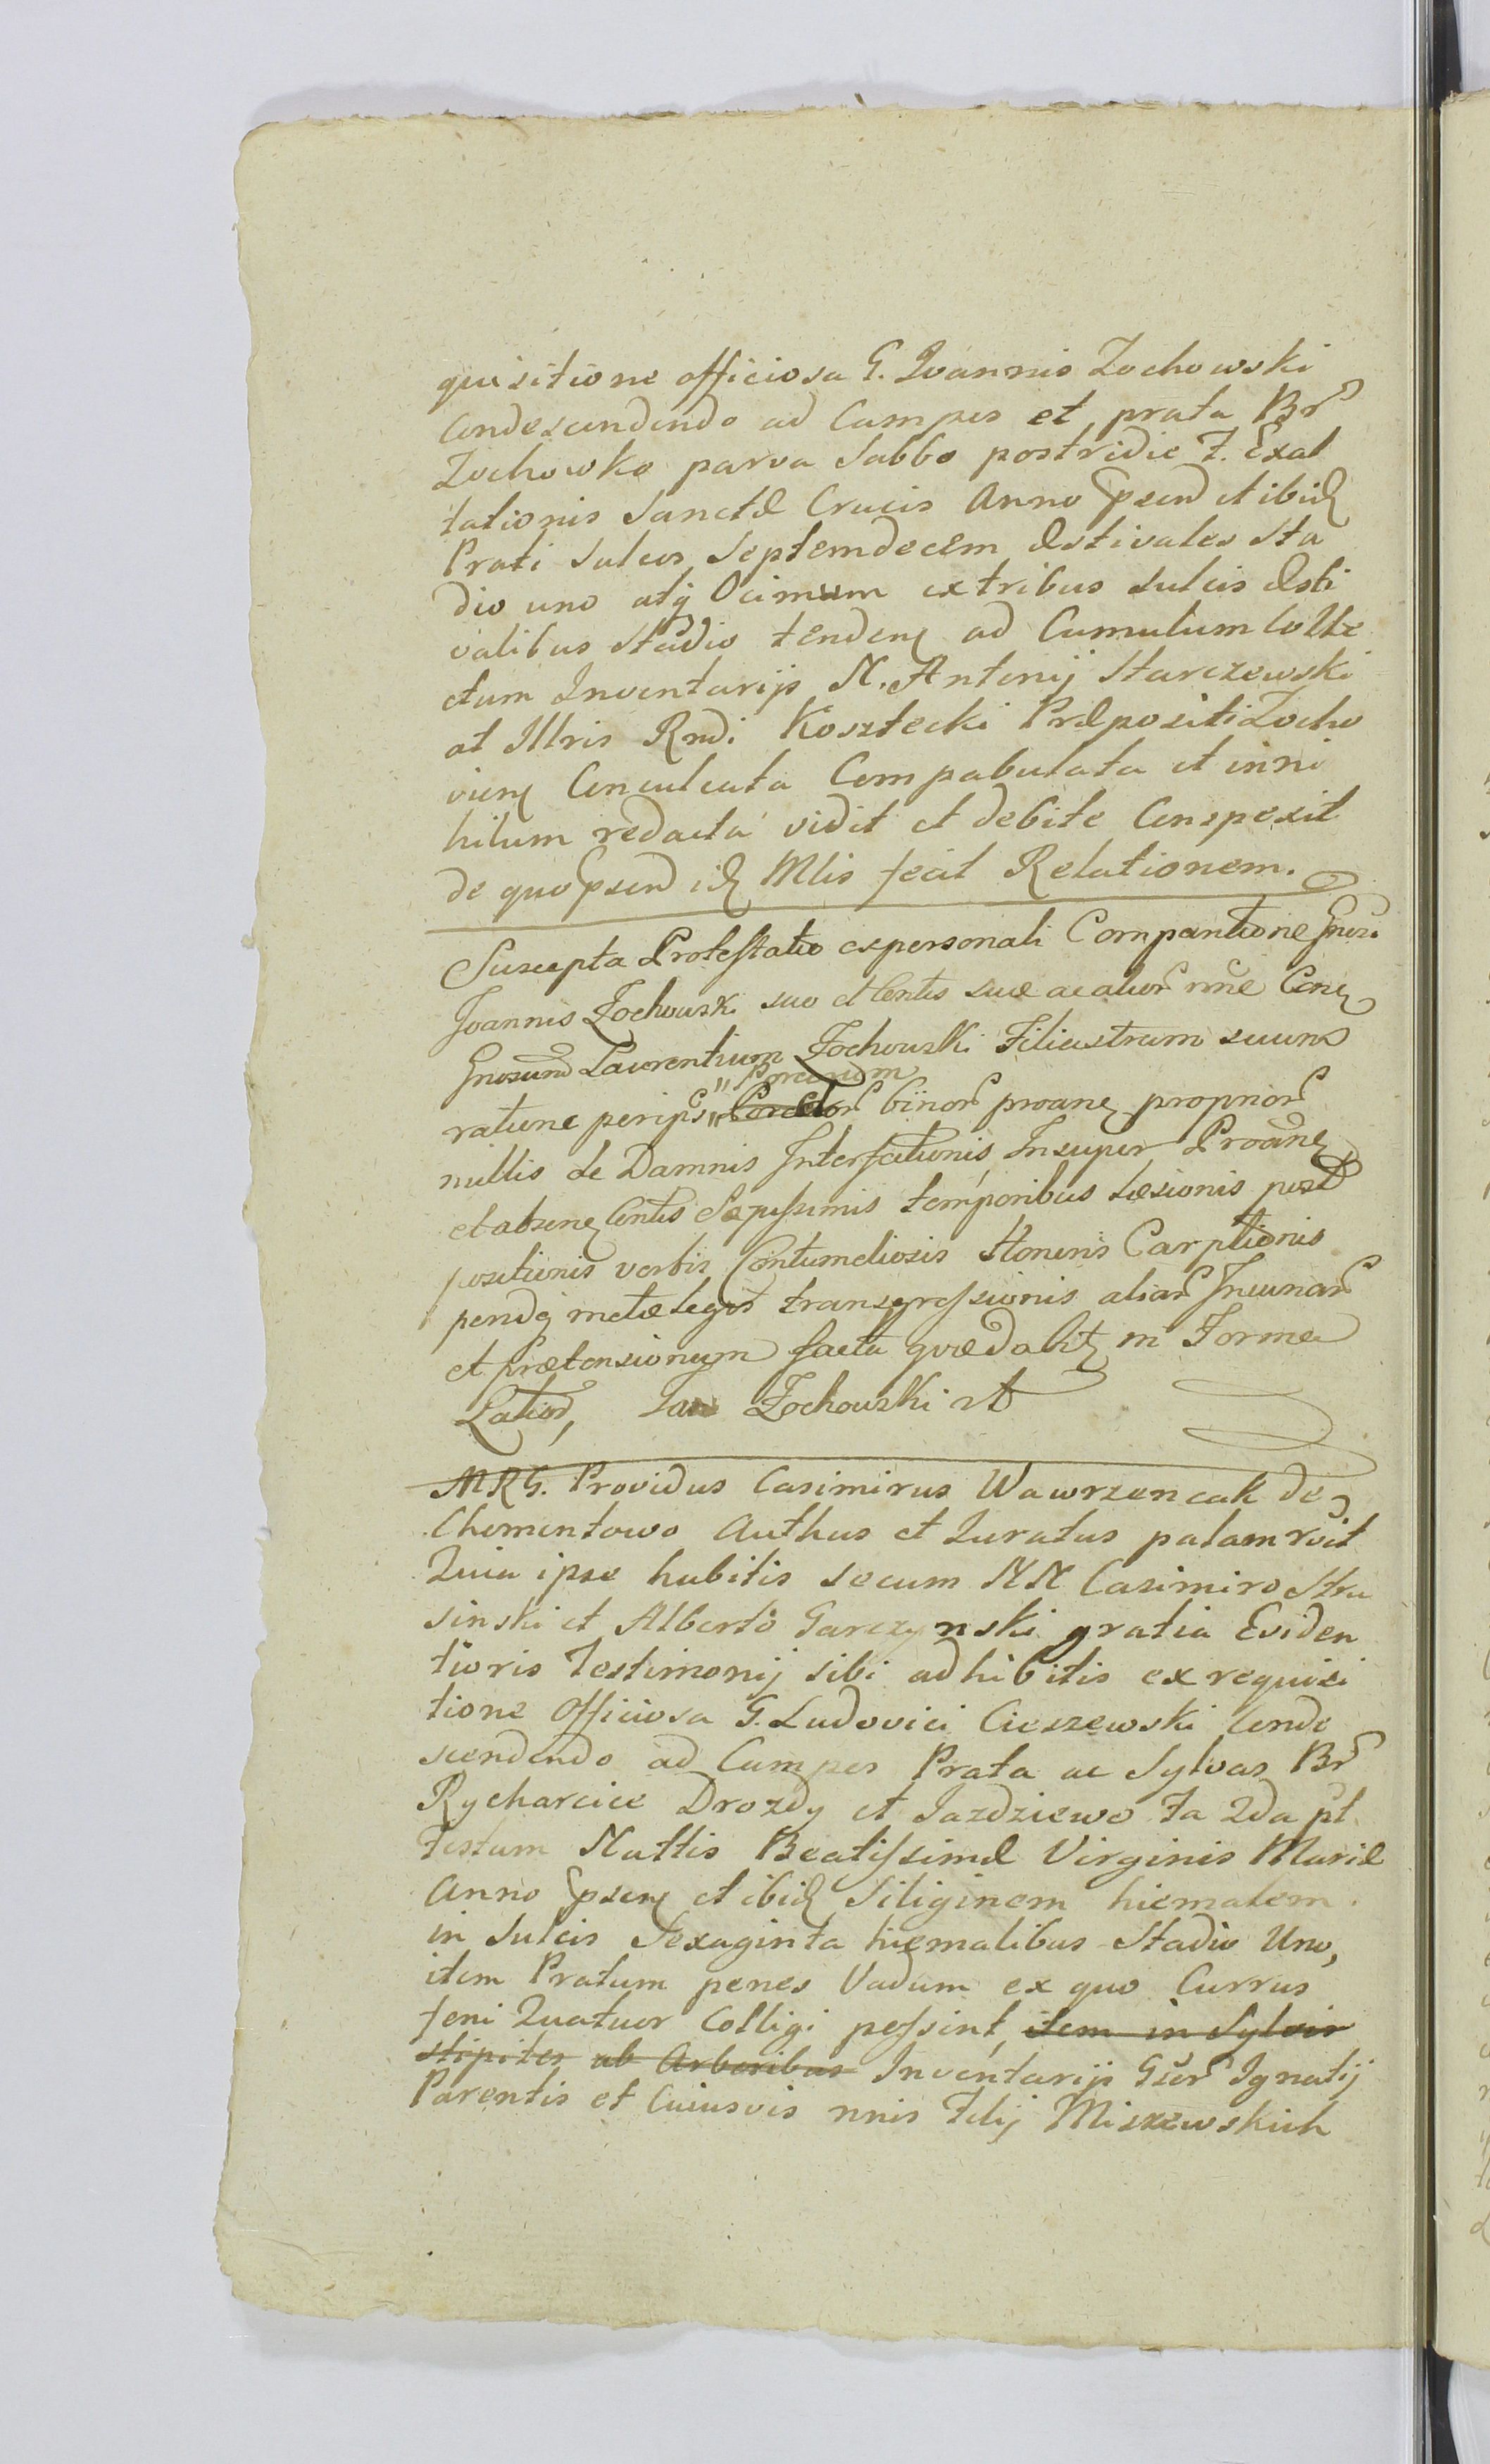 quisitione officiosa G. Ioannis Zochowski
Condescendendo ad Campos et prata Br
Zochowko parva Sabbo postridie F. Exal
tationis Sanctæ Crucis Anno psen et ibid
Prati Sulcos Septemdecem Æstivales Sta
dio uno atq Ocimum ex tribus sulcis Æsti
valibus stadio tenden ad Cumulum Colle
ctum Inventarijs N. Antonij Starczewski
at Illris Rndi Kosztecki Præpositi Zocho
vien Conculcata Compabulata et in ni
hilum redacta vidit et debite Conspexit
de quo psen id Mlis fecit Relationem.
Suscepta Protestatio ex personali Comparitione Gnosi
Joannis Zochowski suo et Contis suæ ac alior nne Con
Gnosum Laurentium Zochowski Filiastrum suum
ratione per ips "Porcorum
binor proane proprior
nullis de Damnis Interfectionis, Insuper Proane
et absen Contis Sæpissimis temporibus Læsionis post
positionis verbis Contumeliosis Honoris Carptionis
pendq metæ legis transgressionis aliar Iniuriar
et prætensionum facta quæ dabit in Forma
Latiori, Jan Zochowski
MRG. Providus Casimirus Wawrzencak de
Chomentowo Authus et Iuratus palam rcit
Quia ipse habitis secum NN Casimiro Stru
sinski et Alberto Garczynski gratia Eviden
tioris Testimonij sibi adhibitis ex requisi
tione Officiosa G. Ludovici Cieszewski Conde
scendendo ad Campos Prata ac Sylvas Br
Rycharcice Drozdy et Jazdziewo Fa 2da pt
Festum Nattis Beatissimæ Virginis Mariæ
Anno psen et ibid Siliginem hiemalem
in Sulcis Sexaginta hiemalibus Stadio Uno,
item Pratum penes Vadum ex quo Currus
feni Quatuor Colligi possint, item in Sylvis
stipites ab Arboribus Inventarij Gser Ignatij
Parentis et Cuiusvis nnis Filij Miszewskich